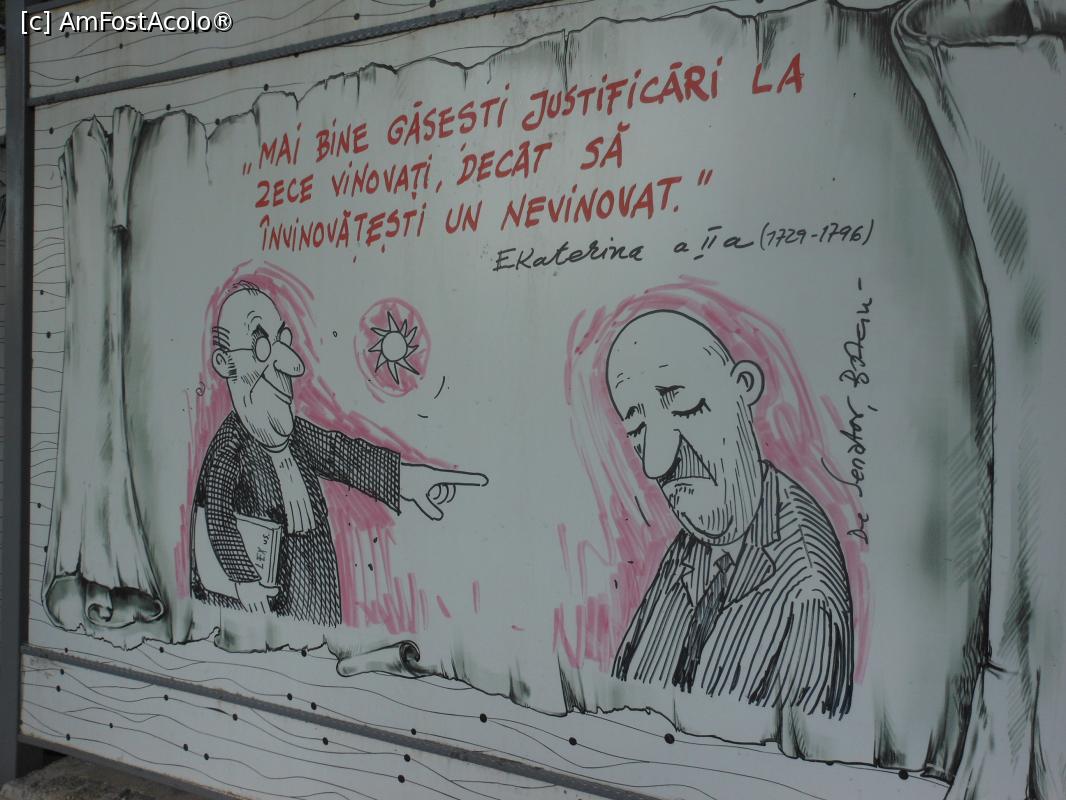 [c] AmFostAcolo®
„MAI BINE GĂSEȘTI JUSTIFICĂRI LA
ZECE VINOVAȚI, DECÂT SĂ
ÎNVINOVĂȚEȘTI UN NEVINOVAT."
Ekaterina a II a (1729-1796)
LEX us.
De Senator,